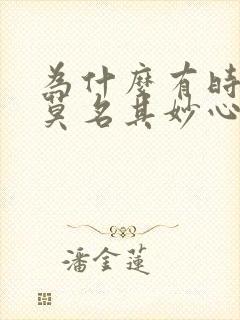 為什麼有時
莫名其妙心
潘金蓮